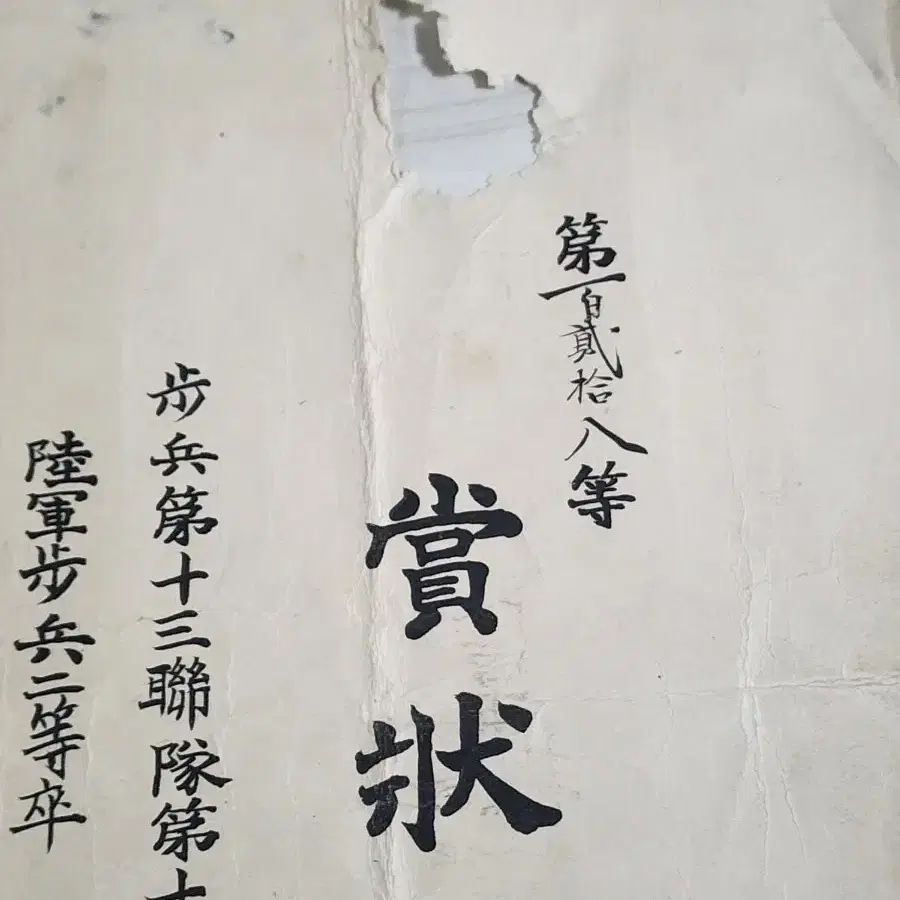 第一百貳拾八等
賞狀
步兵第十三聯隊第十
陸軍步兵二等卒